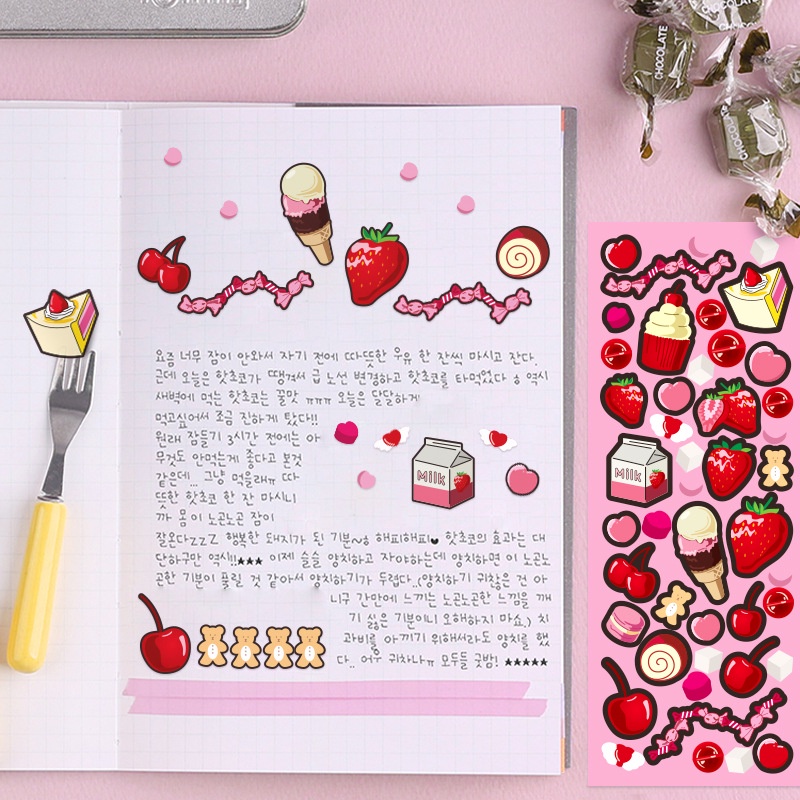 CHOCOLATE
CHOCOLATE
요즘 너무 잠이 안와서 자기 전에 따뜻한 우유 한 잔씩 마시고 잔다.
근데 오늘은 핫초코가 땡겨서 급 노선 변경하고 핫초코를 타먹었다 ㅎ 역시
새벽에 먹는 핫초코는 꿀맛 ㅠㅠㅠ 오늘은 달달하게
먹고싶어서 조금 진하게 탔다!!
원래 잠들기 3시간 전에는 아
무것도 안먹는게 좋다고 본것
같은데.. 그냥 먹을래ㅠ 따
뜻한 핫초코 한 잔 마시니
까 몸이 노곤노곤 잠이
잘온다zzZ 행복한 돼지가 된 기분~! 해피해피♥ 핫초코의 효과는 대
단하구만 역시!!★★★ 이제 슬슬 양치하고 자야하는데 양치하면 이 노곤노
곤한 기분이 풀릴 것 같아서 양치하기가 두렵다..(양치하기 귀찮은 건 아
니구 간만에 느끼는 노곤노곤한 느낌을 깨
기 싫은 기분이니 오해하지 마쇼.) 치
과비를 아끼기 위해서라도 양치를 했
다.. 어우 귀차나ㅠ 모두들 굿밤! ★★★★★
Milk
Milk